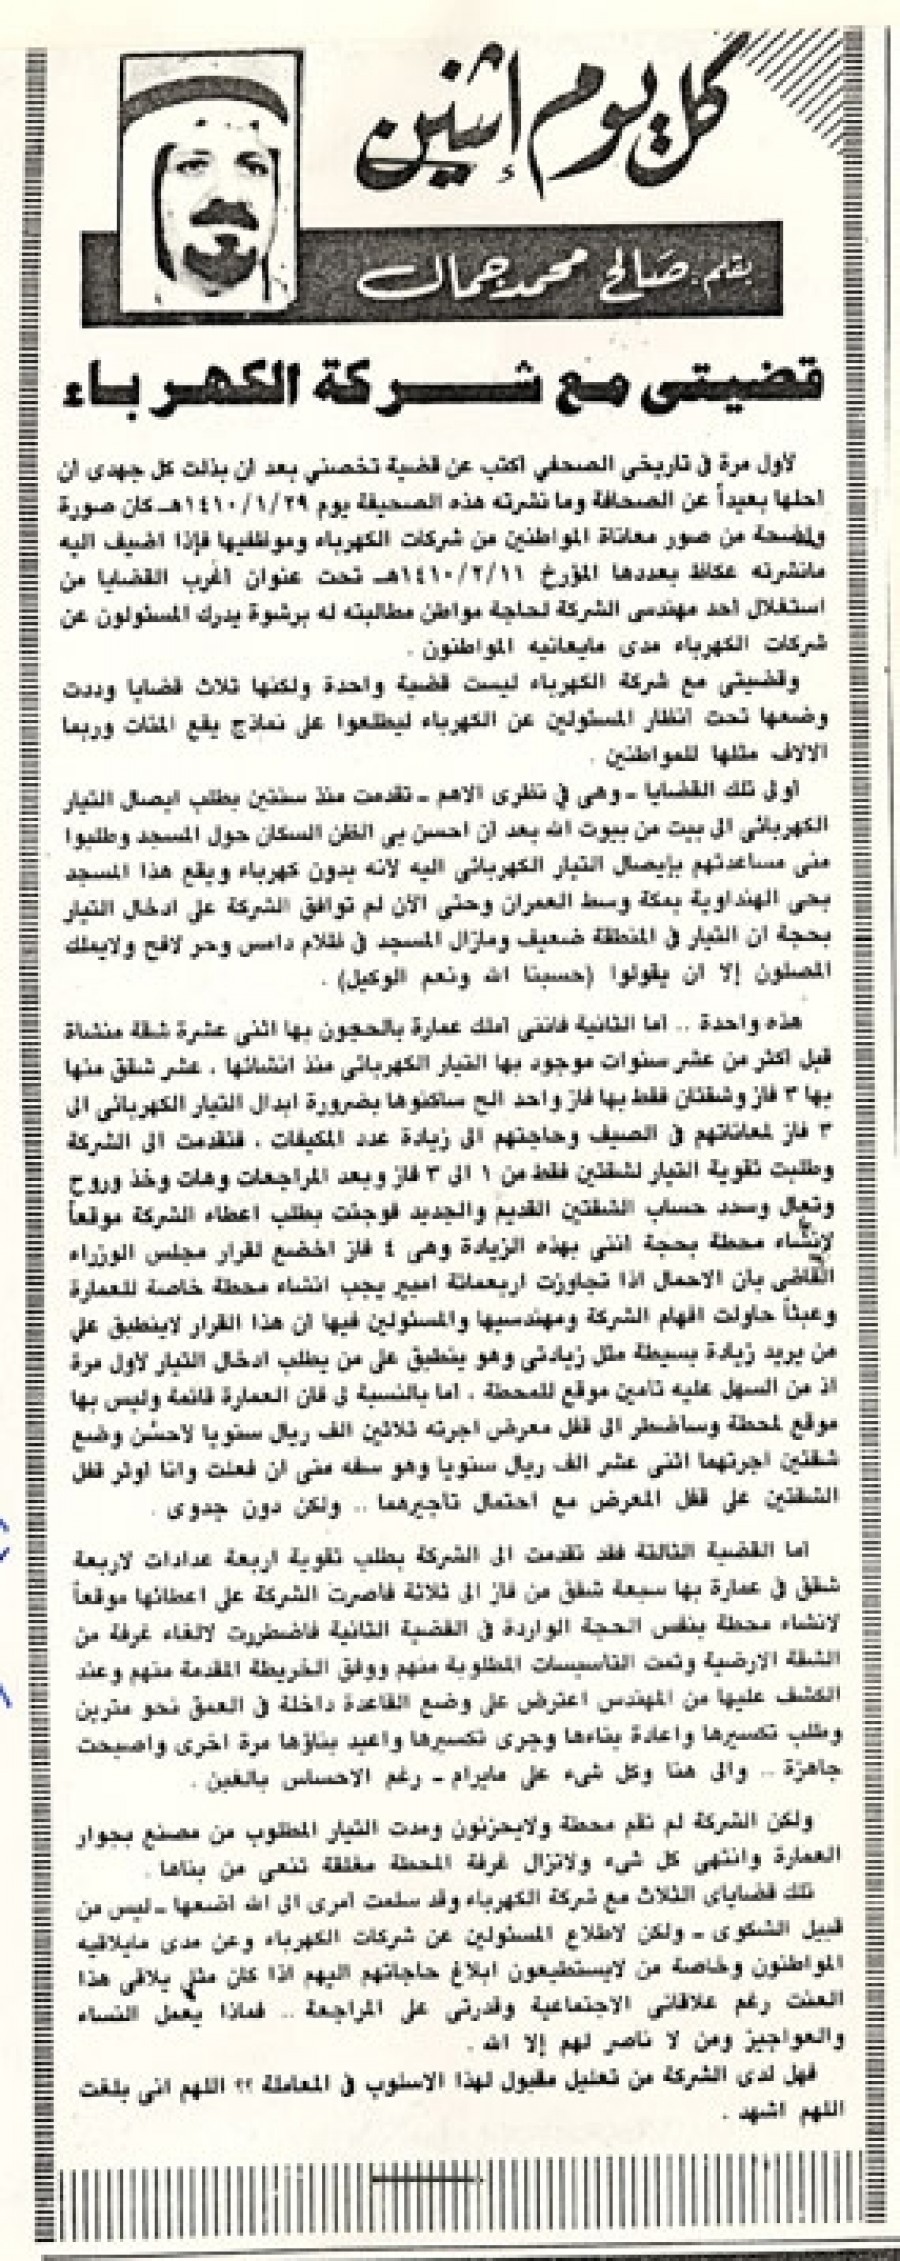 كل يوم إثنين
بقلم: صالح محمد جمال
قضيتى مع شركة الكهرباء
لأول مرة في تاريخى الصحفي اكتب عن قضية تخصني بعد ان بذلت كل جهدى ان
احلها بعيداً عن الصحافة وما نشرته هذه الصحيفة يوم ١٤١٠/١/٢٩هـ كان صورة
واضحة من صور معاناة المواطنين من شركات الكهرباء وموظفيها فإذا اضيف اليه
مانشرته عكاظ بعددها المؤرخ ١٤١٠/٢/١١هـ تحت عنوان أغرب القضايا من
استغلال أحد مهندسى الشركة لحاجة مواطن مطالبته له برشوة يدرك المسئولون عن
شركات الكهرباء مدى مايعانيه المواطنون .
وقضيتى مع شركة الكهرباء ليست قضية واحدة ولكنها ثلاث قضايا وددت
وضعها تحت انظار المسئولين عن الكهرباء ليطلعوا على نماذج يقع المئات وربما
الالاف مثلها للمواطنين .
أولى تلك القضايا ـ وهى في نظرى الاهم ـ تقدمت منذ سنتين بطلب ايصال التيار
الكهربائى الى بيت من بيوت الله بعد ان احسن بى الظن السكان حول المسجد وطلبوا
منى مساعدتهم بإيصال التيار الكهربائى اليه لانه بدون كهرباء ويقع هذا المسجد
بحى الهنداوية بمكة وسط العمران وحتى الآن لم توافق الشركة على ادخال التيار
بحجة ان التيار في المنطقة ضعيف ومازال المسجد في ظلام دامس وحر لافح ولايملك
المصلون إلا ان يقولوا (حسبنا الله ونعم الوكيل) .
هذه واحدة .. اما الثانية فاننى املك عمارة بالحجون بها اثنى عشرة شقة منشاة
قبل اكثر من عشر سنوات موجود بها التيار الكهربائى منذ انشائها . عشر شقق منها
بها ٣ فاز وشقتان فقط بها فاز واحد الح ساكنوها بضرورة ابدال التيار الكهربائى الى
٣ فاز لمعاناتهم في الصيف وحاجتهم الى زيادة عدد المكيفات . فتقدمت الى الشركة
وطلبت تقوية التيار لشقتين فقط من ١ الى ٣ فاز وبعد المراجعات وهات وخذ وروح
وتعال وسدد حساب الشقتين القديم والجديد فوجئت بطلب اعطاء الشركة موقعاً
لإنشاء محطة بحجة اننى بهذه الزيادة وهى ٤ فاز اخضع لقرار مجلس الوزراء
القاضى بان الاحمال اذا تجاوزت اربعمائة امبير يجب انشاء محطة خاصة للعمارة
وعبثاً حاولت افهام الشركة ومهندسيها والمسئولين فيها ان هذا القرار لاينطبق على
من يريد زيادة بسيطة مثل زيادتى وهو ينطبق على من يطلب ادخال التيار لأول مرة
اذ من السهل عليه تأمين موقع للمحطة . اما بالنسبة لى فان العمارة قائمة وليس بها
موقع لمحطة وساضطر الى قفل معرض اجرته ثلاثين الف ريال سنويا لاحسّن وضع
شقتين اجرتهما اثنى عشر الف ريال سنويا وهو سفه منى ان فعلت وانا اوثر قفل
الشقتين على قفل المعرض مع احتمال تأجيرهما .. ولكن دون جدوى .
اما القضية الثالثة فقد تقدمت الى الشركة بطلب تقوية اربعة عدادات لاربعة
شقق في عمارة بها سبعة شقق من فاز الى ثلاثة فاصرت الشركة على اعطائها موقعاً
لإنشاء محطة بنفس الحجة الواردة في القضية الثانية فاضطررت لالغاء غرفة من
الشقة الارضية وتمت التاسيسات المطلوبة منهم ووفق الخريطة المقدمة منهم وعند
الكشف عليها من المهندس اعترض على وضع القاعدة داخلة في العمق نحو مترين
وطلب تكسيرها واعادة بناءها وجرى تكسيرها واعيد بناؤها مرة اخرى واصبحت
جاهزة .. والى هنا وكل شىء على مايرام ـ رغم الاحساس بالغبن .
ولكن الشركة لم تقم محطة ولايحزنون ومدت التيار المطلوب من مصنع بجوار
العمارة وانتهى كل شىء ولاتزال غرفة المحطة مغلقة تنعى من بناها .
تلك قضاياى الثلاث مع شركة الكهرباء وقد سلمت امرى الى الله اضعها ـ ليس من
قبيل الشكوى ـ ولكن لاطلاع المسئولين عن شركات الكهرباء وعن مدى مايلاقيه
المواطنون وخاصة من لايستطيعون ابلاغ حاجاتهم اليهم اذا كان مثلى يلاقى هذا
العنت رغم علاقاتى الاجتماعية وقدرتى على المراجعة .. فماذا يعمل النساء
والعواجيز ومن لا ناصر لهم إلا الله .
فهل لدى الشركة من تعليل مقبول لهذا الاسلوب في المعاملة ؟؟ اللهم انى بلغت
اللهم اشهد .